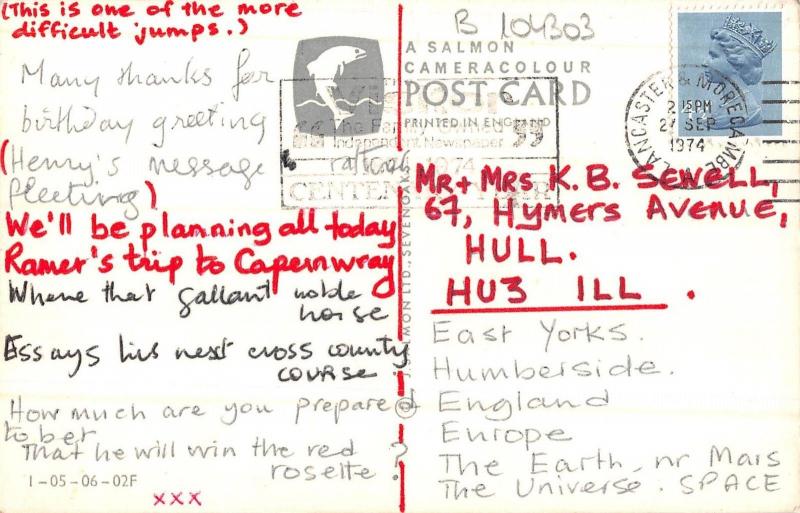 (This is one of the more
difficult jumps.)
Many thanks for
birthday greeting
(Henry's message
fleeting)
We'll be planning all today
Ramer's trip to Capernwray
Where that gallant noble
horse
Essays his next cross county
course.
How much are you prepared
to bet
That he will win the red
rosette?
1-05-06-02F
xxx
B 104303
A SALMON
CAMERACOLOUR
POST CARD
PRINTED IN ENGLAND
The Family Owned
Independent Newspaper
1974
J. SALMON LTD., SEVENOAKS
©
LANCASTER & MORECAMBE
2 15PM
27 SEP
1974
Mr + Mrs K. B. Sewell,
67, Hymers Avenue,
HULL.
HU3 1LL.
East Yorks.
Humberside.
England
Europe
The Earth, nr Mars
The Universe. SPACE